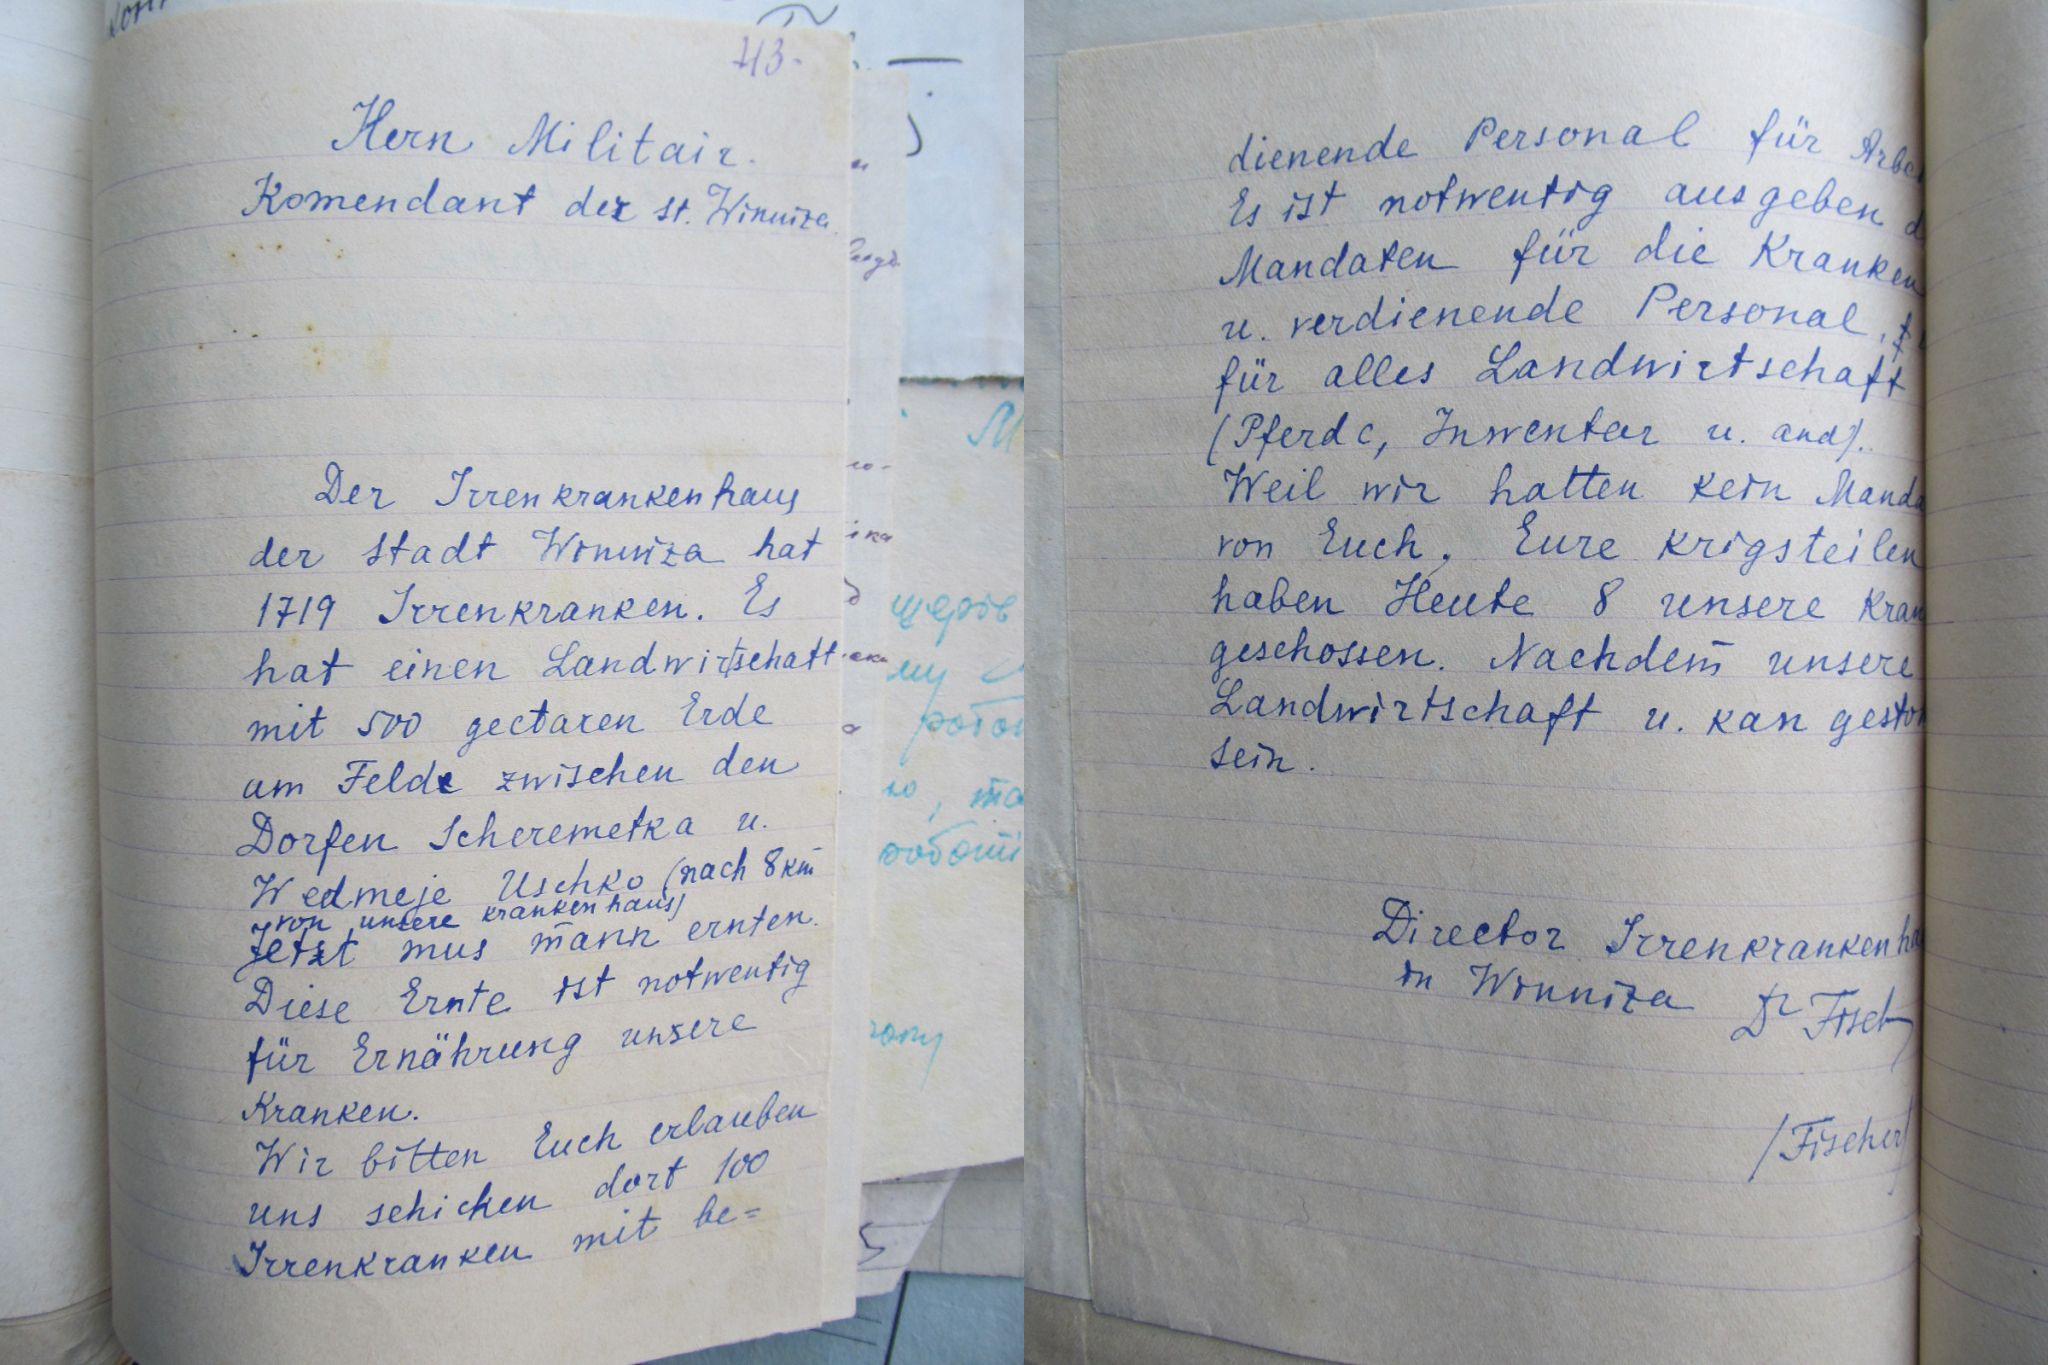 43.
Hern Militair.
Komendant der st. Winniza
Der Irrenkrankenhaus
der Stadt Winniza hat
1719 Irrenkranken. Es
hat einen Landwirtschaft
mit 500 gectaren Erde
am Felde zwischen den
Dorfen Scheremetka u.
Wedmeje Uschko (nach 8 km
von unsere krankenhaus)
Jetzt mus mann ernten.
Diese Ernte ist notwentig
für Ernährung unsere
Kranken.
Wir bitten Euch erlauben
uns schicken dort 100
Irrenkranken mit be=
щерів
му
робот
роботі
dienende Personal für Arbe
Es ist notwentig ausgeben d
Mandaten für die Kranken
u. verdienende Personal,
für alles Landwirtschaft
(Pferde, Inwentar u. and).
Weil wir hatten kein Manda
von Euch, Eure krigsteilen
haben Heute 8 unsere Kran
geschossen. Nachdem unsere
Landwirtschaft u. kan gestor
sein.
Director Irrenkrankenha
in Winniza Dr Fisch
/Fischer/